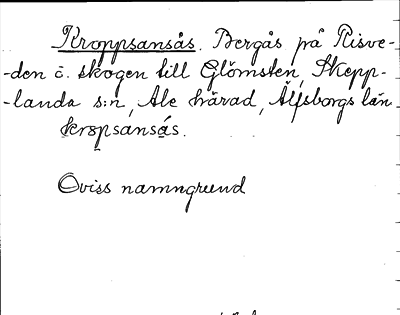 Kroppsansås. Bergås på Risve-
-den i. skogen till Glömsten, Skepp-
-landa s:n, Ale härad, Älfsborgs län.
kropsansás.
Oviss namngrund